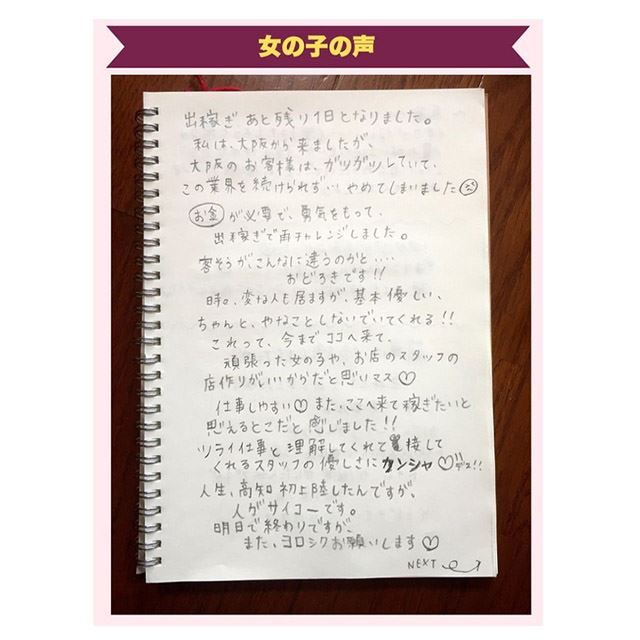 女の子の声
出稼ぎ あと残り1日となりました。
私は、大阪から来ましたが、
大阪のお客様は、ガツガツしていて、
この業界を続けられず… やめてしまいました
お金が必要で、勇気をもって、
出稼ぎで再チャレンジしました。
客そうが、こんなに違うのかと‥‥
おどろきです!!
時々、変な人も居ますが、基本優しい、
ちゃんと、やなことしないでいてくれる!!
これって、今までココへ来て、
頑張った女の子や、お店のスタッフの
店作りがいいからだと思いマス♡
仕事しやすい♡ また、ここへ来て稼ぎたいと
思えるとこだと感じました!!
ツライ仕事と理解してくれて接して
くれるスタッフの優しさにカンシャ♡デス!!
人生、高知初上陸したんですが、
人がサイコーです。
明日で終わりですが、
また、ヨロシクお願いします♡
NEXT